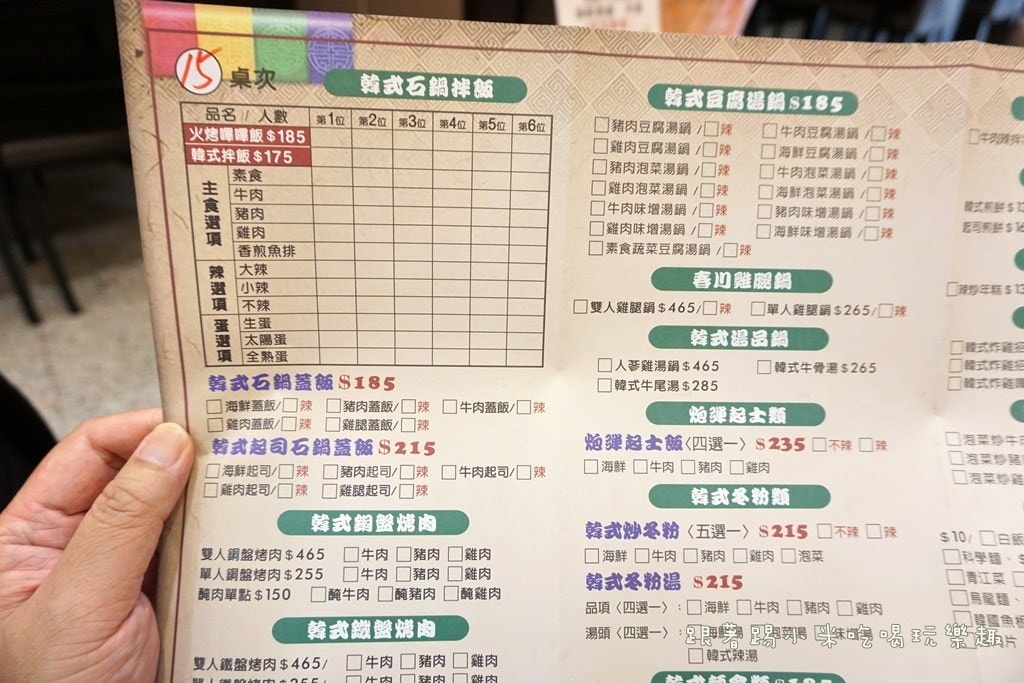 15 桌次
韓式石鍋拌飯
品名/人數 第1位 第2位 第3位 第4位 第5位 第6位
火烤嗶嗶飯$185
韓式拌飯$175
主食選項
素食
牛肉
豬肉
雞肉
香煎魚排
辣選項
大辣
小辣
不辣
蛋選項
生蛋
太陽蛋
全熟蛋
韓式石鍋蓋飯$185
□海鮮蓋飯/□辣 □豬肉蓋飯/□辣 □牛肉蓋飯/□辣
□雞肉蓋飯/□辣 □雞腿蓋飯/□辣
韓式起司石鍋蓋飯$215
□海鮮起司/□辣 □豬肉起司/□辣 □牛肉起司/□辣
□雞肉起司/□辣 □雞腿起司/□辣
韓式銅盤烤肉
雙人銅盤烤肉$465 □牛肉 □豬肉 □雞肉
單人銅盤烤肉$255 □牛肉 □豬肉 □雞肉
醃肉單點$150 □醃牛肉 □醃豬肉 □醃雞肉
韓式鐵盤烤肉
雙人鐵盤烤肉$465/ □牛肉 □豬肉 □雞肉
韓式豆腐湯鍋$185
□豬肉豆腐湯鍋/□辣 □牛肉豆腐湯鍋/□辣
□雞肉豆腐湯鍋/□辣 □海鮮豆腐湯鍋/□辣
□豬肉泡菜湯鍋/□辣 □牛肉泡菜湯鍋/□辣
□雞肉泡菜湯鍋/□辣 □海鮮泡菜湯鍋/□辣
□牛肉味增湯鍋/□辣 □豬肉味增湯鍋/□辣
□雞肉味增湯鍋/□辣 □海鮮味增湯鍋/□辣
□素食蔬菜豆腐湯鍋/□辣
春川雞腿鍋
□雙人雞腿鍋$465/□辣 □單人雞腿鍋$265/□辣
韓式湯品鍋
□人蔘雞湯鍋$465 □韓式牛骨湯$265
□韓式牛尾湯$285
炮彈起士類
炮彈起士飯〈四選一〉$235 □不辣 □辣
□海鮮 □牛肉 □豬肉 □雞肉
韓式冬粉類
韓式炒冬粉〈五選一〉$215 □不辣 □辣
□海鮮 □牛肉 □豬肉 □雞肉 □泡菜
韓式冬粉湯 $215
品項〈四選一〉: □海鮮 □牛肉 □豬肉 □雞肉
湯頭〈四選一〉:
□韓式辣湯
韓式煎餅$
起司煎餅$
□辣炒年糕$
□韓式炸雞
□韓式炸雞
□韓式炸雞
□泡菜炒牛
□泡菜炒豬
□泡菜炒雞
$10/ □白飯
□科學麵、
□青江菜
□烏龍麵、
□韓國魚板
跟著踢小米吃喝玩樂趣